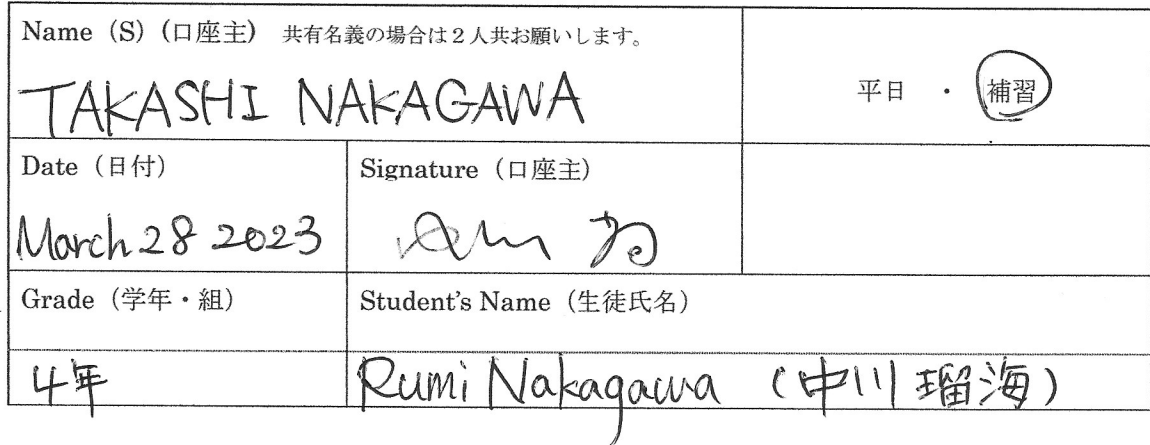 Name（S）(口座主) 共有名義の場合は２人共お願いします。
TAKASHI NAKAGAWA
平日 ・ 補習
Date（日付）
March 28 2023
Signature（口座主）
Grade（学年・組）
4年
Student's Name（生徒氏名）
Rumi Nakagawa (中川 瑠海)